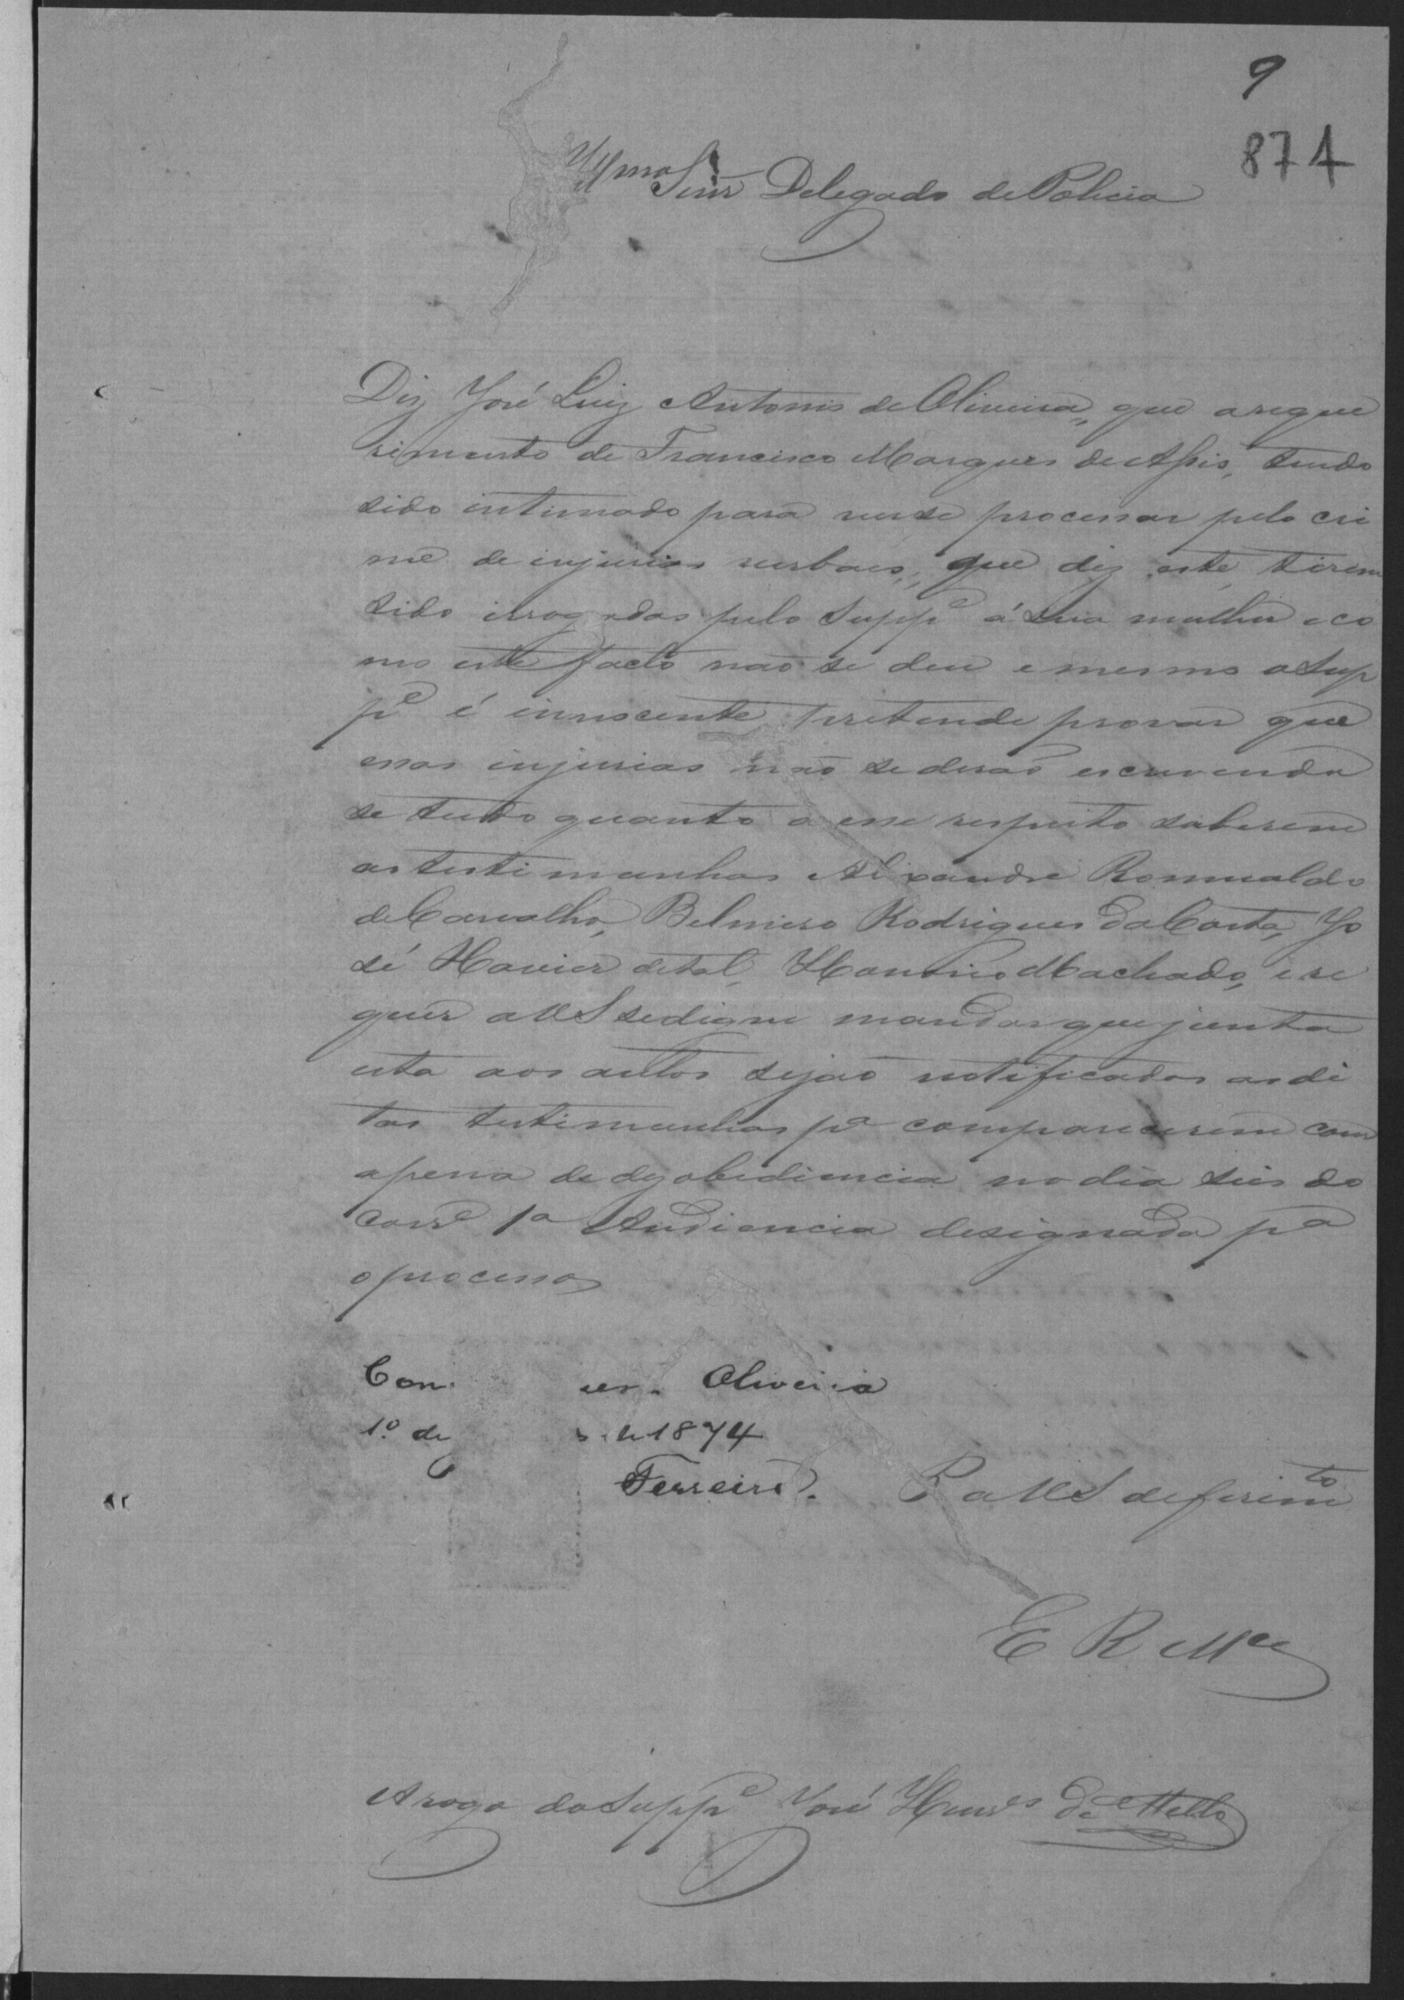 9
874
Illmo Senr Delegado de Policia
Diz José Luiz Antonio de Oliveira, que a reque
rimento de Francisco Marques de Assis, tendo
sido intimado para verse processar pelo cri
me de injurias verbaes, que diz este, terem
sido irrogadas pelo Suppe á sua mulher e co
mo este facto não se deu e mesmo o Sup
pe é innocente pretende provar que
essas injurias não se derão escrevendo
se tudo quanto a esse respeito saberem
as testimunhas Alixandre Romualdo
de Carvalho, Belmiro Rodrigues da Costa, Jo
sé Xavier de tal, Machado, e re
quer a VS se digne mandar que junta
esta aos autos sejão notificados as di
tas testimunhas pa comparecerem com
a pena de dezobediencia no dia seis do
corre 1a Audiencia designada pa
o processo
Con. Oliveira
1º de 1874
Ferreira.
P a VS deferimto
E R Mce
A rogo do Suppe José Henrs de Mello